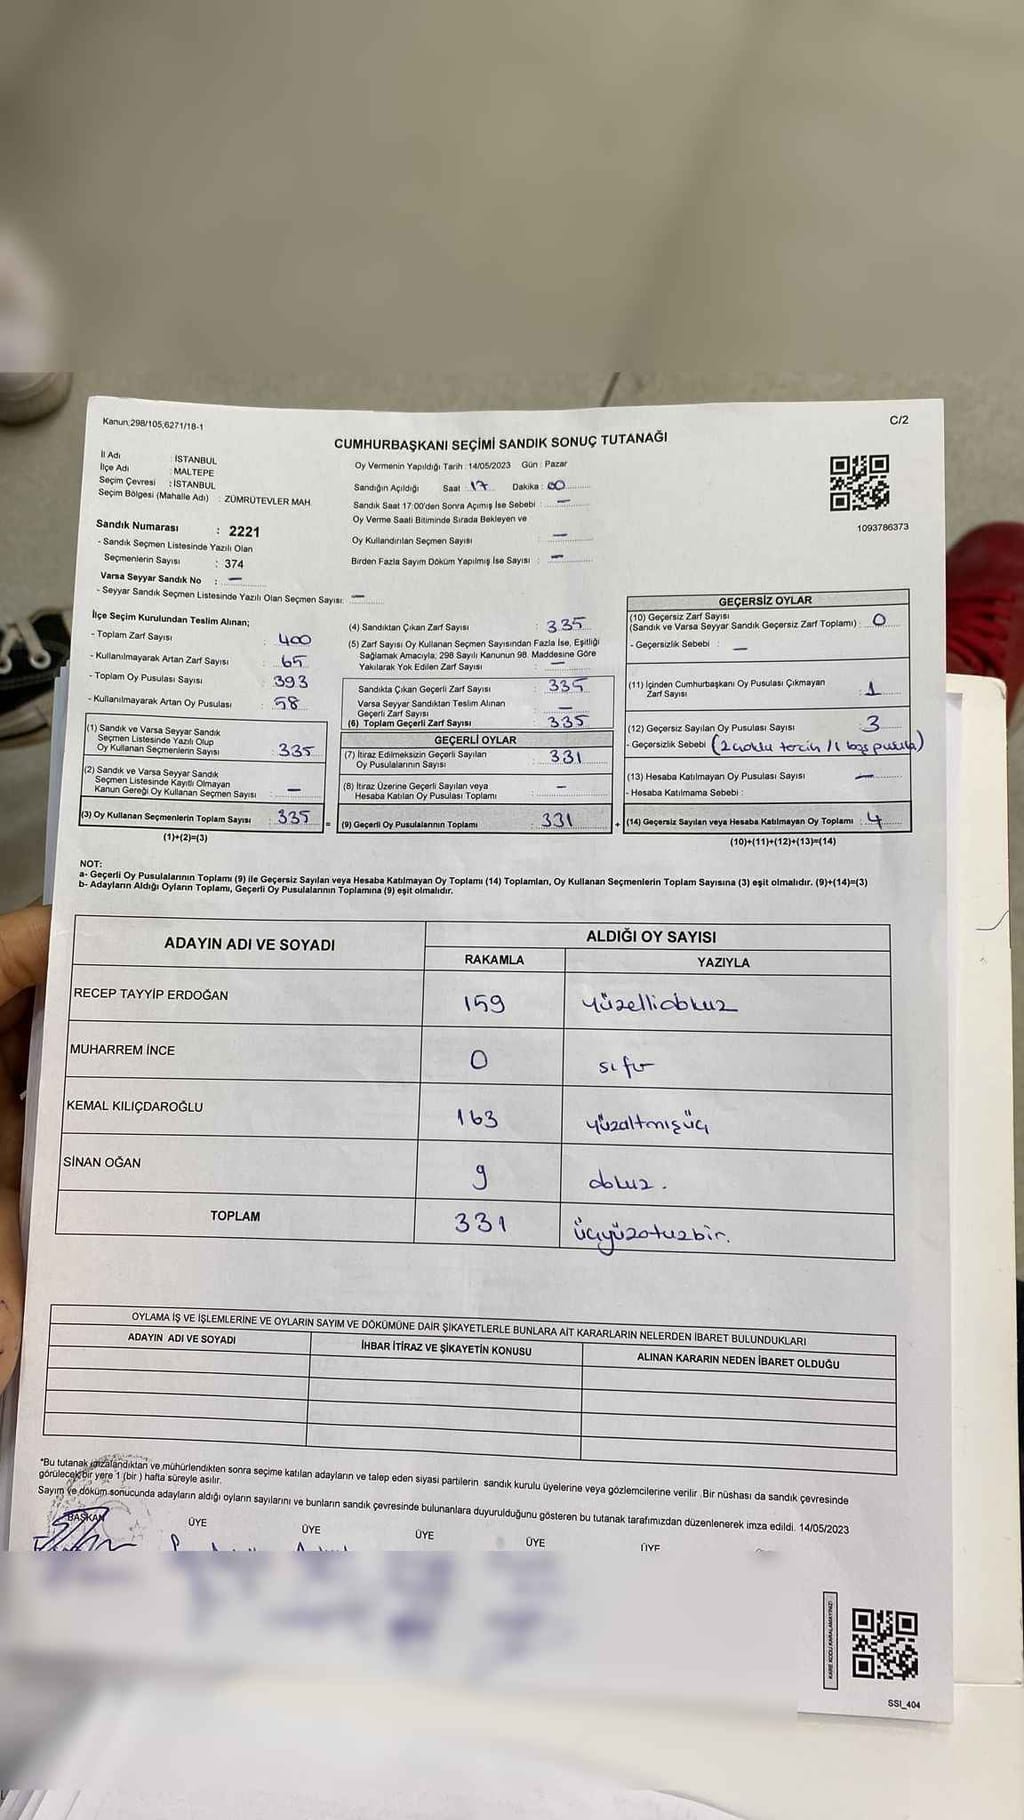 Kanun;298/105,6271/18-1
C/2
CUMHURBAŞKANI SEÇİMİ SANDIK SONUÇ TUTANAĞI
İl Adı : İSTANBUL
İlçe Adı : MALTEPE
Seçim Çevresi : İSTANBUL
Seçim Bölgesi (Mahalle Adı) : ZÜMRÜTEVLER MAH.
Sandık Numarası : 2221
- Sandık Seçmen Listesinde Yazılı Olan
Seçmenlerin Sayısı : 374
Varsa Seyyar Sandık No : —
- Seyyar Sandık Seçmen Listesinde Yazılı Olan Seçmen Sayısı: —
Oy Vermenin Yapıldığı Tarih : 14/05/2023 Gün : Pazar
Sandığın Açıldığı Saat : 17 Dakika : 00
Sandık Saat 17:00'den Sonra Açımış İse Sebebi : —
Oy Verme Saati Bitiminde Sırada Bekleyen ve
Oy Kullandırılan Seçmen Sayısı : —
Birden Fazla Sayım Döküm Yapılmış İse Sayısı : —
1093786373
İlçe Seçim Kurulundan Teslim Alınan;
- Toplam Zarf Sayısı : 400
- Kullanılmayarak Artan Zarf Sayısı : 65
- Toplam Oy Pusulası Sayısı : 393
- Kullanılmayarak Artan Oy Pusulası : 58
(1) Sandık ve Varsa Seyyar Sandık
Seçmen Listesinde Yazılı Olup
Oy Kullanan Seçmenlerin Sayısı : 335
(2) Sandık ve Varsa Seyyar Sandık
Seçmen Listesinde Kayıtlı Olmayan
Kanun Gereği Oy Kullanan Seçmen Sayısı : —
(3) Oy Kullanan Seçmenlerin Toplam Sayısı : 335
(1)+(2)=(3)
(4) Sandıktan Çıkan Zarf Sayısı : 335
(5) Zarf Sayısı Oy Kullanan Seçmen Sayısından Fazla İse, Eşitliği
Sağlamak Amacıyla, 298 Sayılı Kanunun 98. Maddesine Göre
Yakılarak Yok Edilen Zarf Sayısı : —
Sandıkta Çıkan Geçerli Zarf Sayısı : 335
Varsa Seyyar Sandıktan Teslim Alınan
Geçerli Zarf Sayısı : —
(6) Toplam Geçerli Zarf Sayısı : 335
GEÇERLİ OYLAR
(7) İtiraz Edilmeksizin Geçerli Sayılan
Oy Pusulalarının Sayısı : 331
(8) İtiraz Üzerine Geçerli Sayılan veya
Hesaba Katılan Oy Pusulası Toplamı : —
= (9) Geçerli Oy Pusulalarının Toplamı : 331
GEÇERSİZ OYLAR
(10) Geçersiz Zarf Sayısı
(Sandık ve Varsa Seyyar Sandık Geçersiz Zarf Toplamı) : 0
- Geçersizlik Sebebi : —
(11) İçinden Cumhurbaşkanı Oy Pusulası Çıkmayan
Zarf Sayısı : 1
(12) Geçersiz Sayılan Oy Pusulası Sayısı : 3
- Geçersizlik Sebebi (2 çoklu tercih / 1 boş pusula)
(13) Hesaba Katılmayan Oy Pusulası Sayısı : —
- Hesaba Katılmama Sebebi :
+ (14) Geçersiz Sayılan veya Hesaba Katılmayan Oy Toplamı : 4
(10)+(11)+(12)+(13)=(14)
NOT:
a- Geçerli Oy Pusulalarının Toplamı (9) ile Geçersiz Sayılan veya Hesaba Katılmayan Oy Toplamı (14) Toplamları, Oy Kullanan Seçmenlerin Toplam Sayısına (3) eşit olmalıdır. (9)+(14)=(3)
b- Adayların Aldığı Oyların Toplamı, Geçerli Oy Pusulalarının Toplamına (9) eşit olmalıdır.
ADAYIN ADI VE SOYADI
ALDIĞI OY SAYISI
RAKAMLA YAZIYLA
RECEP TAYYİP ERDOĞAN 159 yüzellidokuz
MUHARREM İNCE 0 sıfır
KEMAL KILIÇDAROĞLU 163 yüzaltmışüç
SİNAN OĞAN 9 dokuz.
TOPLAM 331 üçyüzotuzbir.
OYLAMA İŞ VE İŞLEMLERİNE VE OYLARIN SAYIM VE DÖKÜMÜNE DAİR ŞİKAYETLERLE BUNLARA AİT KARARLARIN NELERDEN İBARET BULUNDUKLARI
ADAYIN ADI VE SOYADI İHBAR İTİRAZ VE ŞİKAYETİN KONUSU ALINAN KARARIN NEDEN İBARET OLDUĞU
*Bu tutanak imzalandıktan ve mühürlendikten sonra seçime katılan adayların ve talep eden siyasi partilerin sandık kurulu üyelerine veya gözlemcilerine verilir .Bir nüshası da sandık çevresinde
görülecek bir yere 1 (bir ) hafta süreyle asılır.
Sayım ve döküm sonucunda adayların aldığı oyların sayılarını ve bunların sandık çevresinde bulunanlara duyurulduğunu gösteren bu tutanak tarafımızdan düzenlenerek imza edildi. 14/05/2023
BAŞKAN ÜYE ÜYE ÜYE ÜYE ÜYE
KARE KODU KARALAMAYINIZ!
SSI_404